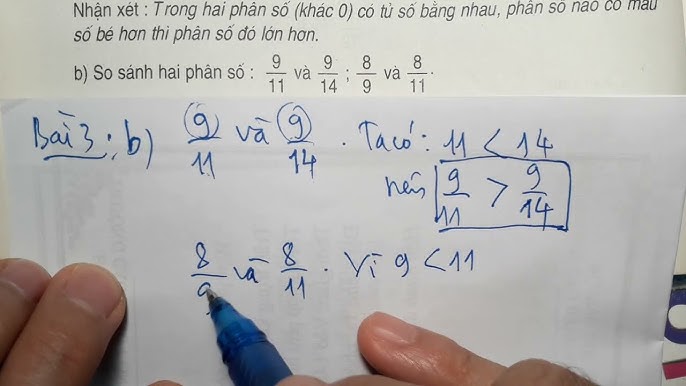 Nhận xét : Trong hai phân số (khác 0) có tử số bằng nhau, phân số nào có mẫu
số bé hơn thì phân số đó lớn hơn.
b) So sánh hai phân số : 9/11 và 9/14 ; 8/9 và 8/11.
Bài 3 : b) 9/11 và 9/14 . Ta có : 11 < 14
nên 9/11 > 9/14
8/9 và 8/11 . Vì 9 < 11